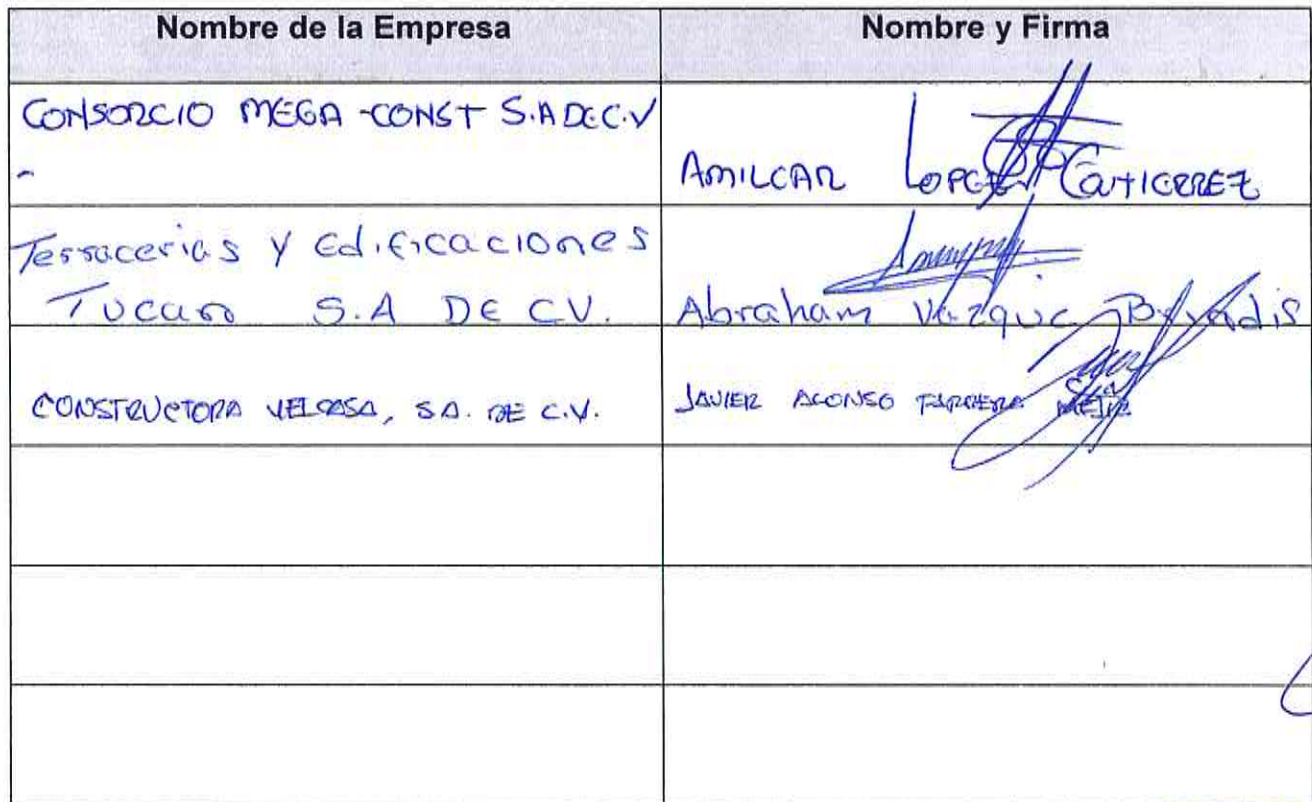 Nombre de la Empresa Nombre y Firma
CONSORCIO MEGA-CONST S.A DE C.V
AMILCAR LOPEZ GUTIERREZ
Terracerias y Edificaciones
Tucan S.A DE CV. Abraham Vazquez
CONSTRUCTORA VELCASA, S.A. DE C.V. JAVIER ALONSO FARRERA